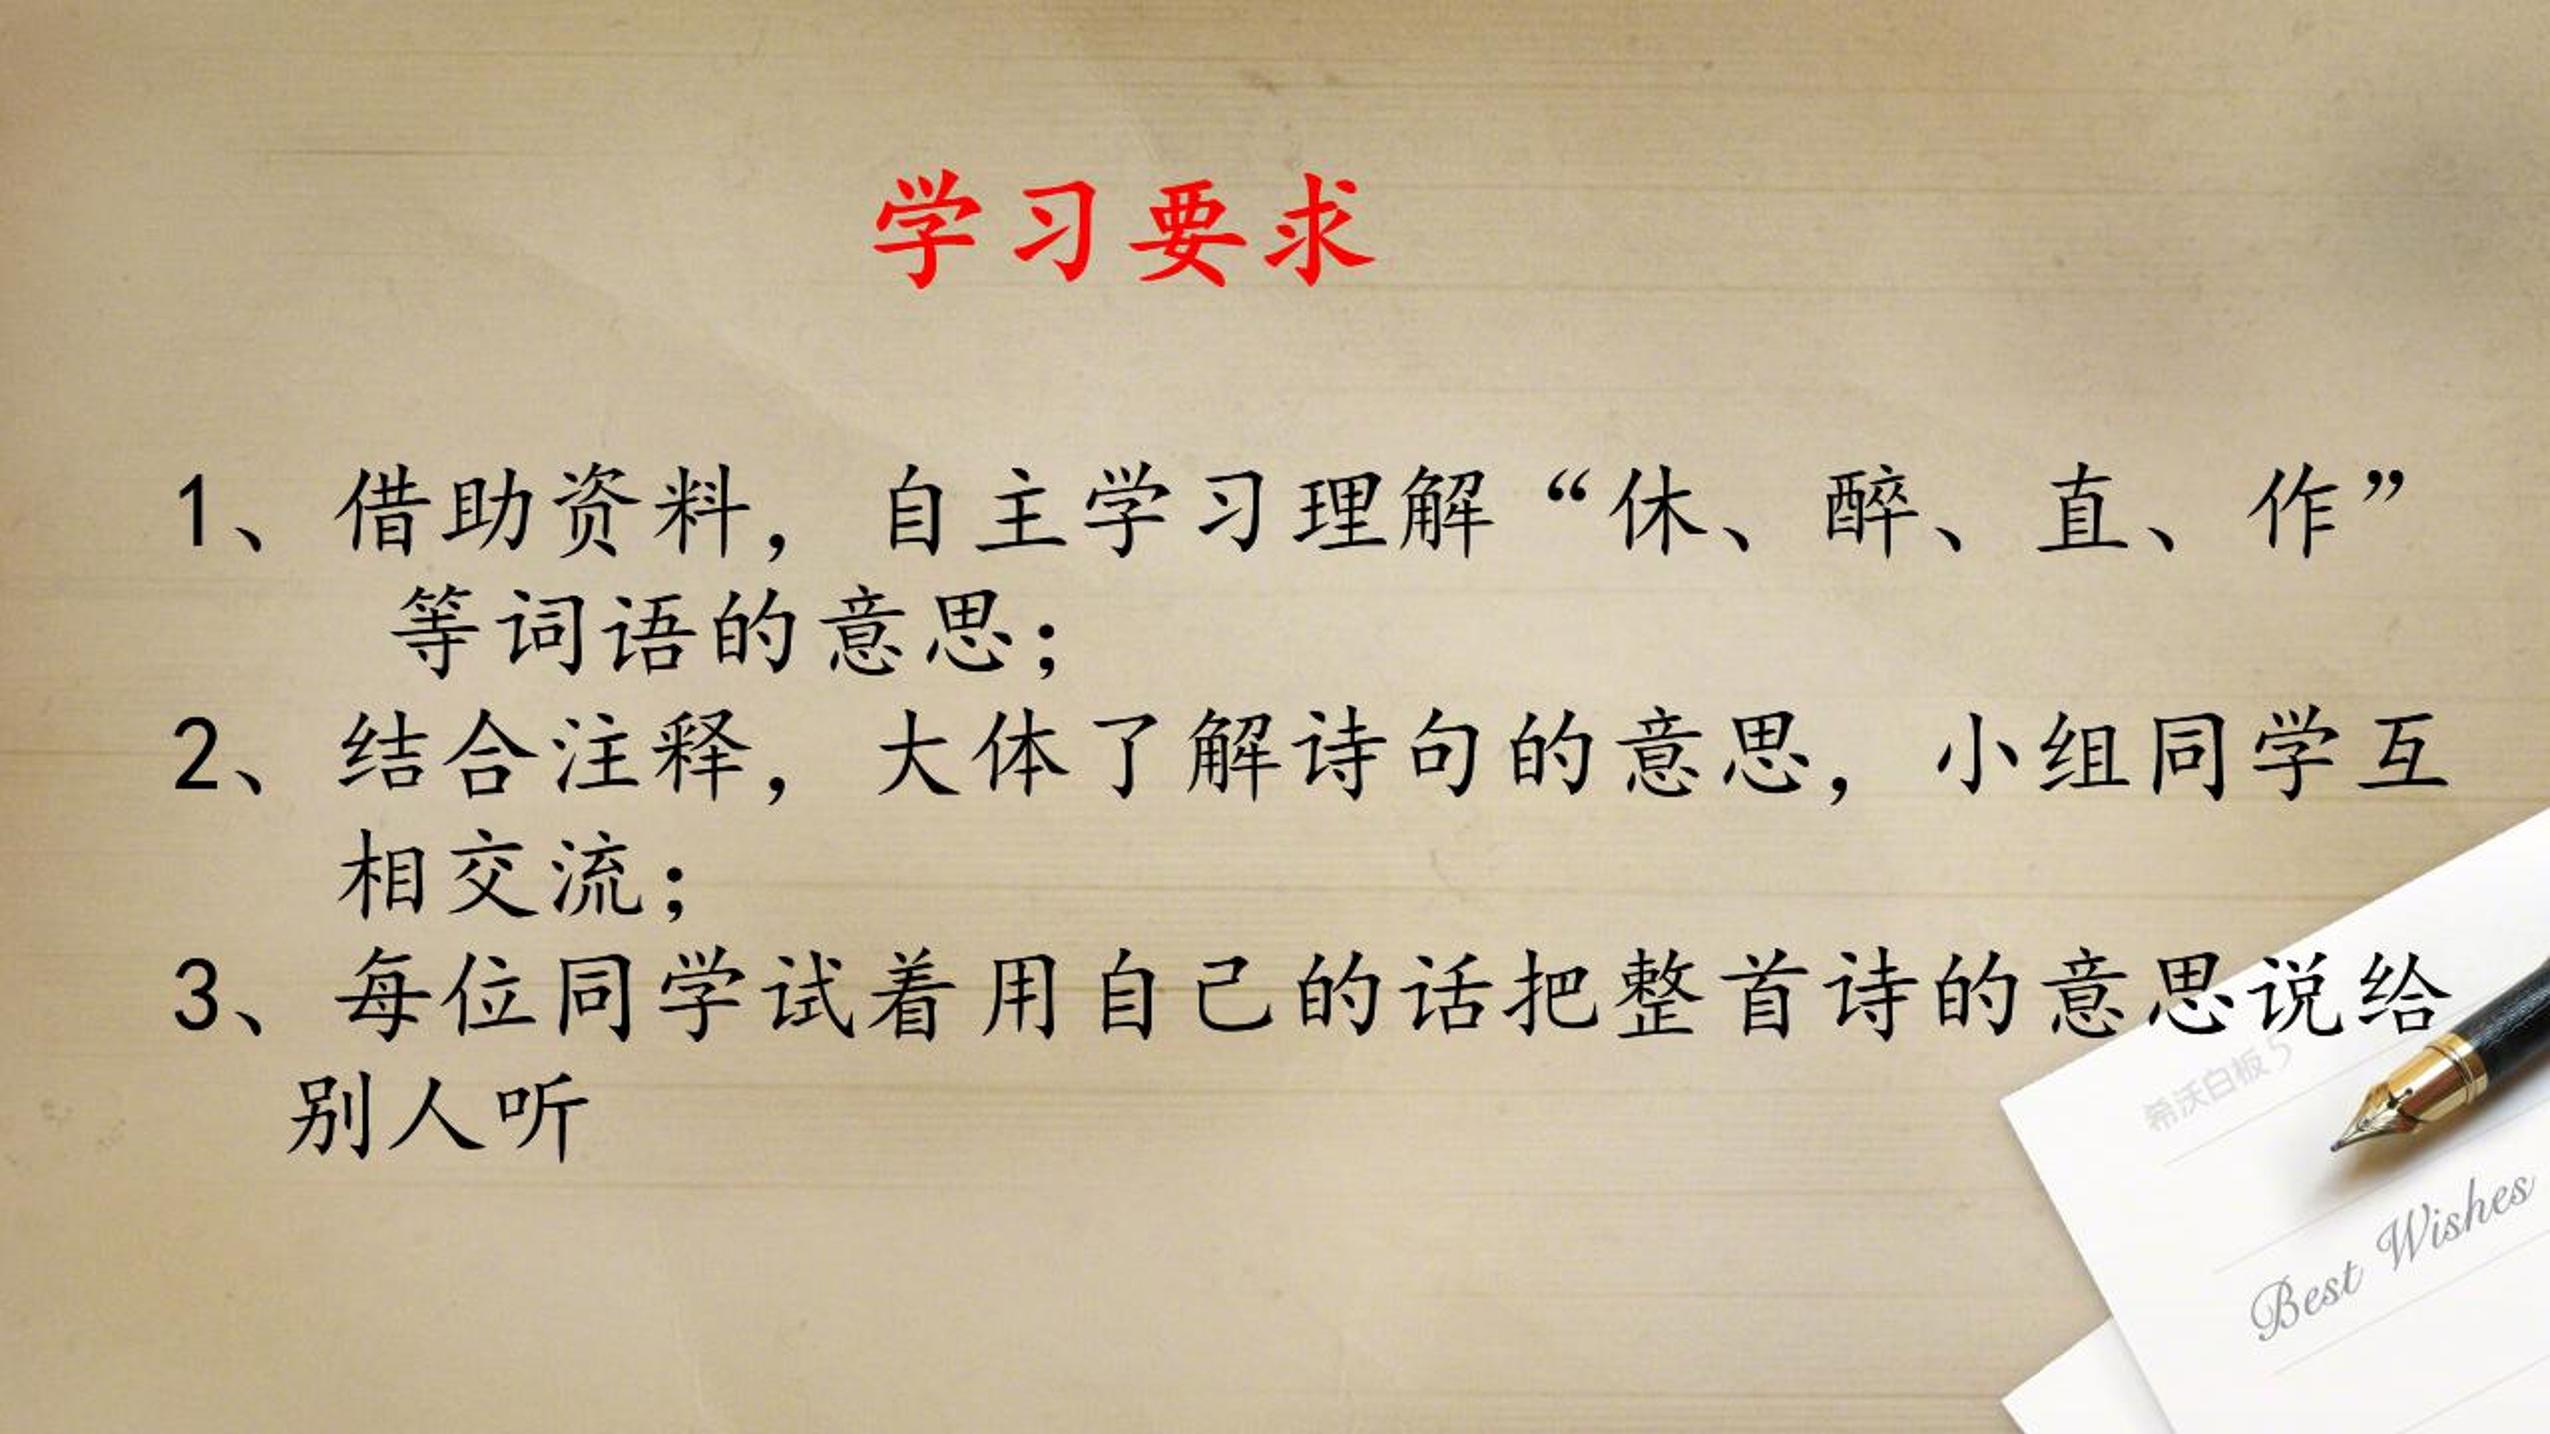 学习要求
1、借助资料，自主学习理解“休、醉、直、作”
等词语的意思；
2、结合注释，大体了解诗句的意思，小组同学互
相交流；
3、每位同学试着用自己的话把整首诗的意思说给
别人听
希沃白板5
Best Wishes